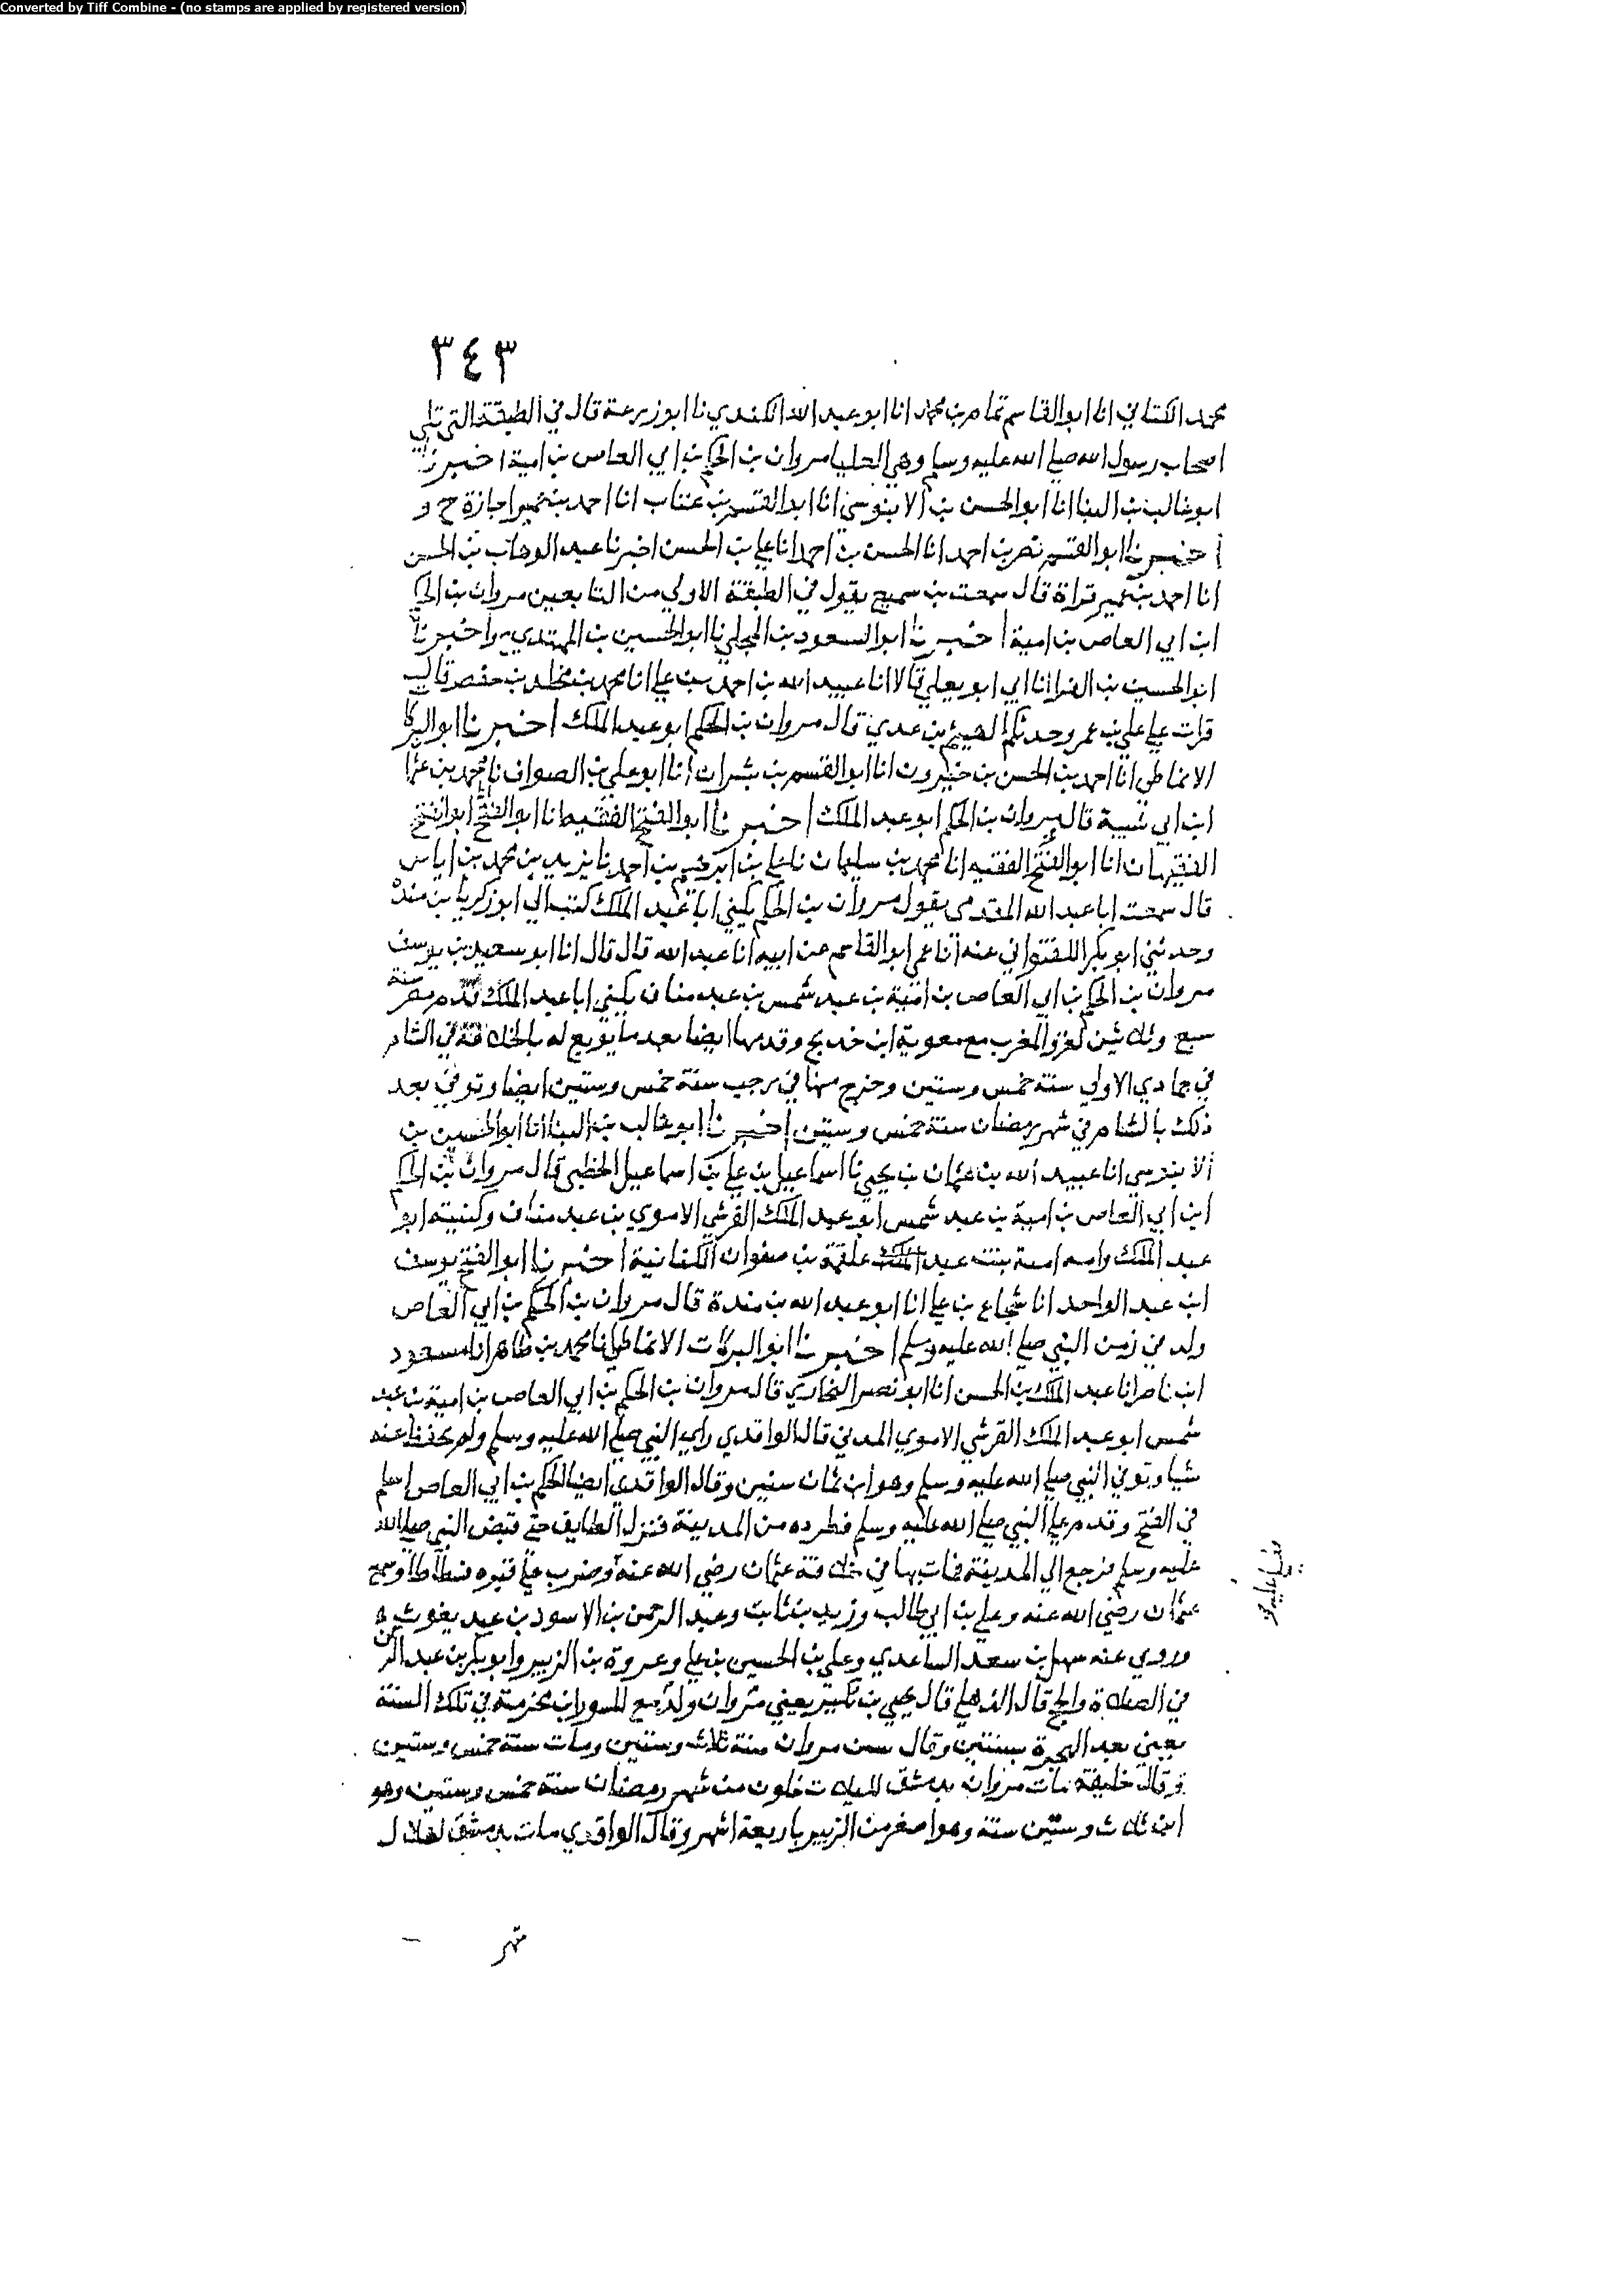 Converted by Tiff Combine - (no stamps are applied by registered version)
٣٤٣
محمد الكتاني انا ابو القاسم تمام بن محمد انا ابو عبد الله الكندي نا ابو زرعة قال في الطبقة التي تلي
اصحاب رسول الله صلى الله عليه وسلم وهي العليا مروان بن الحكم بن ابي العاص بن امية اخبرنا
ابو غالب بن البنا انا ابو الحسن بن الابنوسي انا ابو القسم بن عتاب انا احمد بن عمير اجازة ح و
اخبرنا ابو القسم نصر بن احمد انا الحسن بن احمد انا علي بن الحسن اخبرنا عبد الوهاب بن الحسن
انا احمد بن عمير قراة قال سمعت بن سميع يقول في الطبقة الاولي من التابعين مروان بن الحكم
ابن ابي العاص بن امية اخبرنا ابو السعود بن المجلي نا ابو الحسين بن المهتدي واخبرنا
ابو الحسين بن الفرا انا ابي ابو يعلي قالا انا عبيد الله بن احمد بن علي انا محمد بن مخلد بن حفص قال
قرات علي علي بن عمرو حدثكم الهيثم بن عدي قال مروان بن الحكم ابو عبد الملك اخبرنا ابو البركا
الانماطي انا احمد بن الحسن بن خيرون انا ابو القسم بن بشران انا ابو علي بن الصواف نا محمد بن عثما
ابن ابي شيبة قال مروان بن الحكم ابو عبد الملك اخبرنا ابو الفتح الفقيه انا ابو الفتح ابو الفتح
الفقيهان انا ابو الفتح الفقيه انا محمد بن سليمان نا علي بن ابرهيم بن احمد نا يزيد بن محمد بن اياس
قال سمعت ابا عبد الله المقدمي يقول مروان بن الحكم يكني ابا عبد الملك كتب الي ابو زكريا بن منده
وحدثني ابو بكر اللفتواني عنه انا عمي ابو القاسم عن ابيه انا عبد الله قال قال انا ابو سعيد بن يوسف
مروان بن الحكم بن ابي العاص بن امية بن عبد شمس بن عبد مناف يكني ابا عبد الملك قدم مصر سنة
سبع وثلاثين لغزو المغرب مع معوية ابن خديج وقدمها ايضا بعد ما بويع له بالخلافة في الشام
في جمادي الاولي سنة خمس وستين وخرج منها في رجب سنة خمس وستين ايضا وتوفي بعد
ذلك بالشام في شهر رمضان سنة خمس وستين اخبرنا ابو غالب بن البنا انا ابو الحسين بن
الابنوسي انا عبيد الله بن عثمان بن يحيي نا اسماعيل بن علي بن اسماعيل الخطبي قال مروان بن الحكم
ابن ابي العاص بن امية بن عبد شمس ابو عبد الملك القرشي الاموي بن عبد مناف وكنيته ابو
عبد الملك وامه امنة بنت عبد الملك علقمة بن صفوان الكنانية اخبرنا ابو الفتح يوسف
ابن عبد الواحد انا شجاع بن علي انا ابو عبد الله بن مندة قال مروان بن الحكم بن ابي العاص
ولد في زمن النبي صلي الله عليه وسلم اخبرنا ابو البركات الانماطي انا محمد بن طاهر انا مسعود
ابن ناصر انا عبد الملك بن الحسن انا ابو نصر البخاري قال مروان بن الحكم بن ابي العاص بن امية بن عبد
شمس ابو عبد الملك القرشي الاموي المدني قال الواقدي راي النبي صلي الله عليه وسلم ولم يحفظ عنه
شيا وتوفي النبي صلي الله عليه وسلم وهو ابن ثمان سنين وقال الواقدي ايضا الحكم بن ابي العاص اسلم
في الفتح وقدم علي النبي صلي الله عليه وسلم فطرده من المدينة فنزل الطايف حتي قبض النبي صلي الله
عليه وسلم فرجع الي المدينة فمات بها في خلافة عثمان رضي الله عنه وضرب علي قبره فسطاطا وسمع
عثمان رضي الله عنه وعلي بن ابي طالب وزيد بن ثابت وعبد الرحمن بن الاسود بن عبد يغوث
وروي عنه سهل بن سعد الساعدي وعلي بن الحسين بن علي وعروة بن الزبير وابو بكر بن عبد الرحمن
في الصلاة والحج قال الذهلي قال يحيي بن بكير يعني مروان ولد مع المسور بن مخرمة في تلك السنة
يعني بعد الهجرة بسنتين وقال سن مروان سنة ثلاث وستين ومات سنة خمس وستين
وقال خليفة مات مروان بدمشق لثلاث خلون من شهر رمضان سنة خمس وستين وهو
ابن ثلاث وستين سنة وهو اصغر من الزبير باربعة اشهر وقال الواقدي مات بدمشق لهلال
شهر